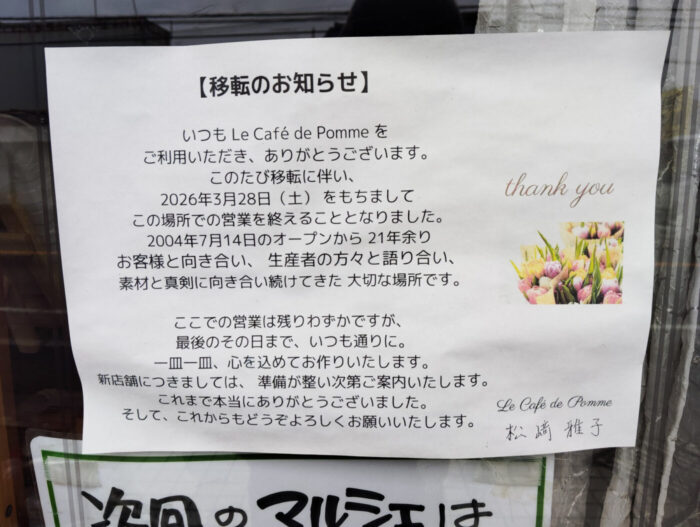 【移転のお知らせ】
いつも Le Café de Pomme を
ご利用いただき、ありがとうございます。
このたび移転に伴い、
2026年3月28日（土） をもちまして
この場所での営業を終えることとなりました。
2004年7月14日のオープンから 21年余り
お客様と向き合い、 生産者の方々と語り合い、
素材と真剣に向き合い続けてきた 大切な場所です。
ここでの営業は残りわずかですが、
最後のその日まで、いつも通りに。
一皿一皿、心を込めてお作りいたします。
新店舗につきましては、 準備が整い次第ご案内いたします。
これまで本当にありがとうございました。
そして、これからもどうぞよろしくお願いいたします。
thank you
Le Café de Pomme
松﨑 雅子
次回のマルシェは